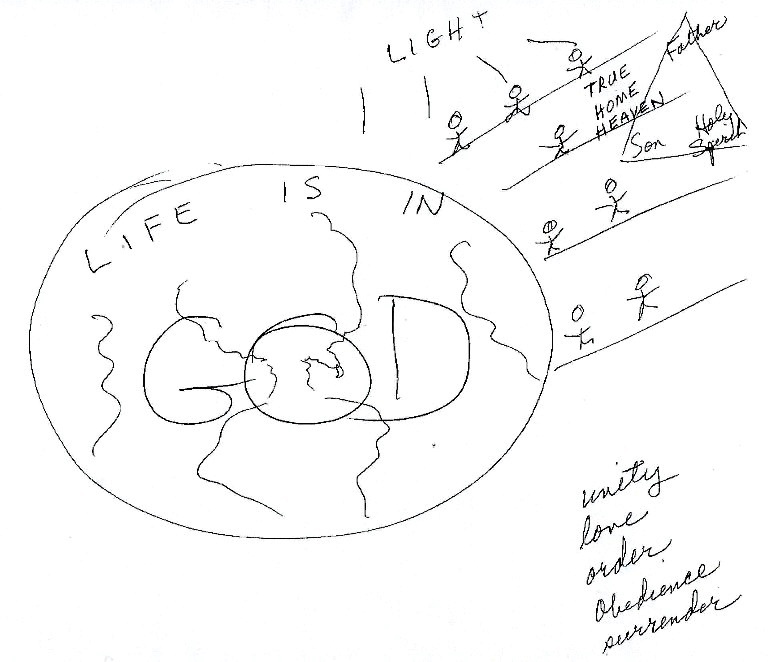 LIGHT
Father
TRUE
HOME
HEAVEN
Son
Holy
Spirit
LIFE IS IN
GOD
unity
love
order
obedience
surrender